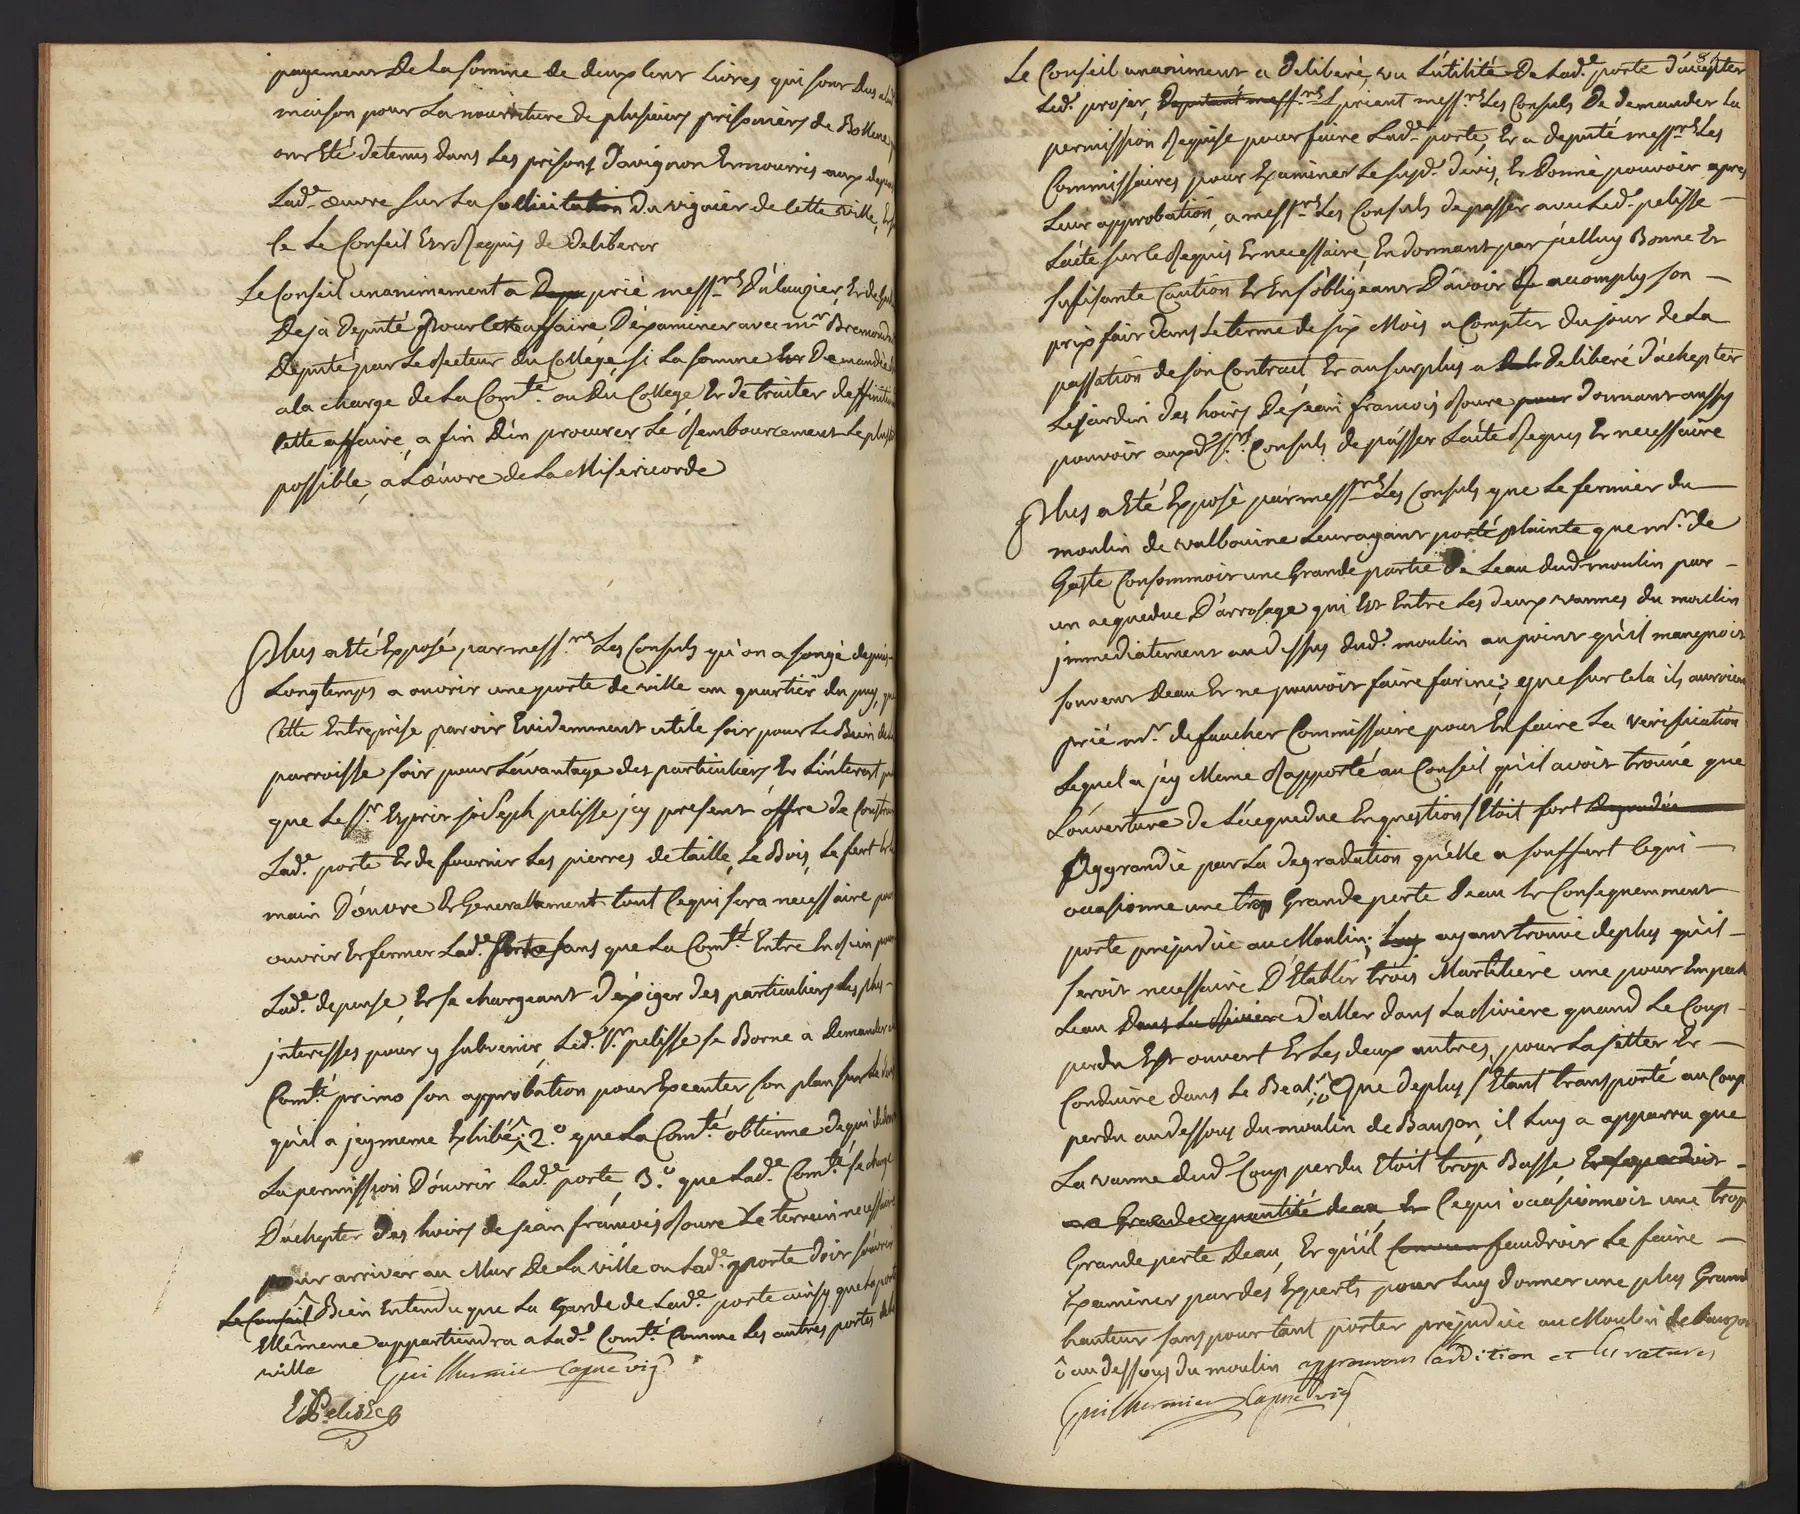 payement De La Somme de deux Cent Livres qui sont dus a
maison pour La nourriture de plusieurs prisoniers de Bollene
ont Eté detenus dans Les prisons d'avignon Et nourris aux depens
Lad.e œuvre sur La sollicitation Du viguier de Cette ville,
Ce Le Conseil Est Requis de deliberer
Le Conseil unanimement a prié mess.rs D'alauzier, Et de
Deja deputé pour Cette affaire D'examiner avec m.r Bremond
Deputé par Le Recteur du College si La somme Demandée
a la charge de La Com.té ou Du College Et de traiter deffinitiv
Cette affaire, a fin D'en procurer Le Remboursement Le plus
possible, a L'œuvre de La Misericorde
Plus a Eté Exposé par mess.rs Les Consuls qu'on a songé depuis
Longtemps a ouvrir une porte de ville au quartier du puy, que
Cette Entreprise paroit Evidemment utile soit pour Le Bien de
parroisse soit pour L'avantage des particuliers Et L'interest
que Le S.r Esprit Joseph pelisse jcy present offre de Constr
Lad.e porte Et de fournir Les pierres de taille, Le Bois, Le fert
main D'œuvre Et Generallement tout Ce qui sera necessaire pour
ouvrir Et fermer Lad.e Porte sans que La Com.té Entre En Rien pour
Lad.e depense, Et se chargeant d'exiger des particuliers Les plus
jnteressés pour y subvenir, Led. S.r pelisse se Borne a Demander
Com.té primo son approbation pour Executer son plan sur Le
qu'il a jcy meme Exhibé; 2.o que La Com.té obtienne de qui
La permission D'ouvrir Lad.e porte, 3.o que Lad.e Com.té se charge
D'achepter des hoirs de jean françois Roure Le terrein necessaire
pour arriver au Mur De La ville ou Lad.e porte doit s'ouvrir
Le Conseil Bien Entendu que La Garde de Lad.e porte ainsy que La porte
Mêmeme appartiendra a Lad.e Com.té Comme Les autres portes de La
ville Guilhermier Cappnevig
E J Pelisse
Le Conseil unanimement a deliberé, vu L'utilité De Lad.e porte d'accepter
Led. projet, Deputant mess.rs priant mess.rs Les Consuls De demander La
permission Requise pour faire Lad.e porte, Et a deputé mess.rs Les
Commissaires pour Examiner Le susd. devis, Et Donné pouvoir apres
Leur approbation, a mess.rs Les Consuls de passer avec Led. pelisse
L'acte sur Ce Requis Et necessaire, En donnant par jcelluy Bonne Et
suffisante Caution Et En s'obligeant D'avoir accomply son
prix fait dans Le terme de six Mois a Compter du jour de La
passation de son Contract Et au surplus a deliberé d'achepter
Le jardin des hoirs De jean francois Roure donnant aussy
pouvoir auxd. S.rs Consuls de passer L'acte Requis Et necessaire
Plus a Eté Exposé par mess.rs Les Consuls que Le fermier du
moulin de valbouine Leur ayant porté plainte que m.r de
Gaste Consommoit une Grande partie de L'eau dud. moulin par
un acqueduc D'arrosage qui Est Entre Les deux vannes du moulin
jmmediatement au dessus dud. moulin au point qu'il manquoit
souvent D'eau Et ne pouvoit faire farine; que sur Cela ils auroient
prié m.r de faucher Commissaire pour En faire La verification
Lequel a jcy Meme Rapporté au Conseil qu'il avoit trouvé que
L'ouverture de L'acqueduc En question Etoit fort Degradée
Aggrandie par La degradation qu'elle a souffert Ce qui
occasionne une trop Grande perte D'eau Et Consequemment
porte prejudice au Moulin; Luy ayant trouvé de plus qu'il
seroit necessaire D'Etablir trois Martiliere une pour Empech
L'eau Dans La Riviere d'aller dans La Riviere quand Le Coup
perdu Est ouvert Et Les deux autres pour La jetter Et
Conduire dans Le Beal; Que de plus s'Etant transporté au Coup
perdu au dessous du moulin de Bauzon, il Luy a apparu que
La vanne dud. Coup perdu Etoit trop Basse Et
Grande quantité d'eau Et Ce qui occasionnoit une trop
Grande perte D'eau, Et qu'il faudroit Le faire
Examiner par des Experts pour Luy donner une plus Grande
hauteur sans pour tant porter prejudice au Moulin de Bauzon
ô au dessous du moulin approuvant L'addition et Les ratures
Guilhermier Cappnevig